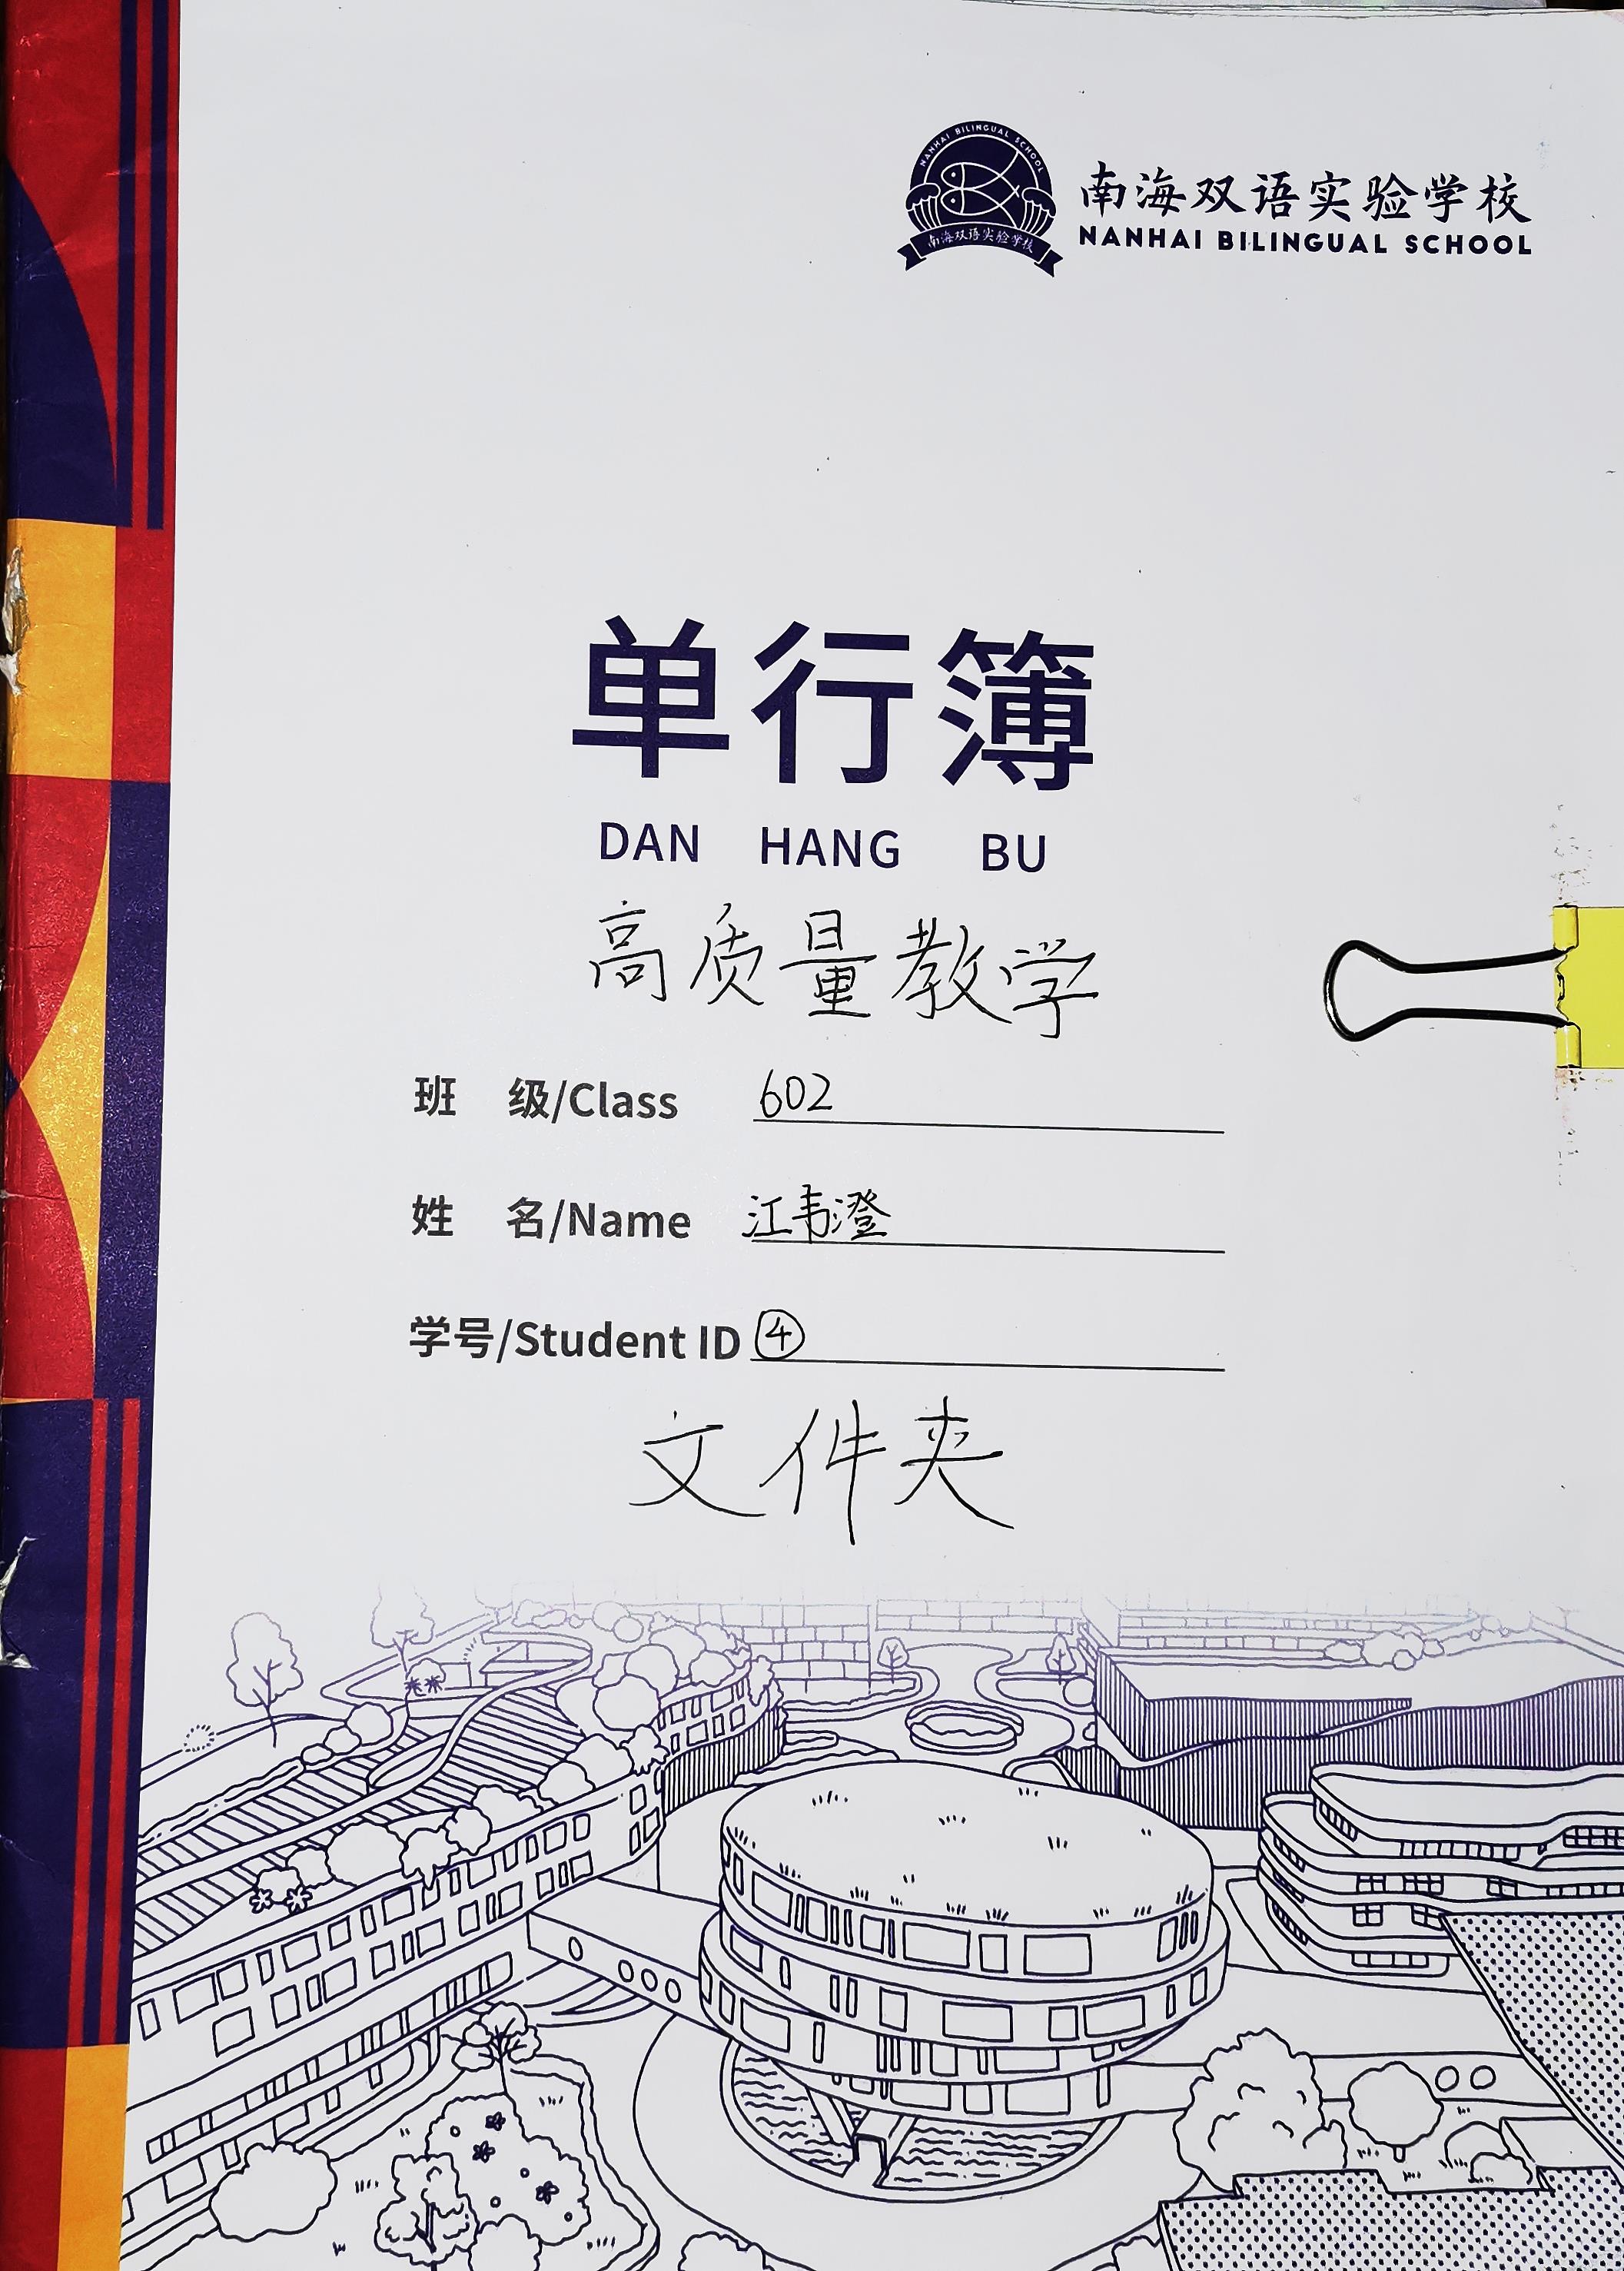 NANHAI BILINGUAL SCHOOL
南海双语实验学校
南海双语实验学校
NANHAI BILINGUAL SCHOOL
单行簿
DAN HANG BU
高质量教学
班 级/Class 602
姓 名/Name 江韦澄
学号/Student ID ④
文件夹